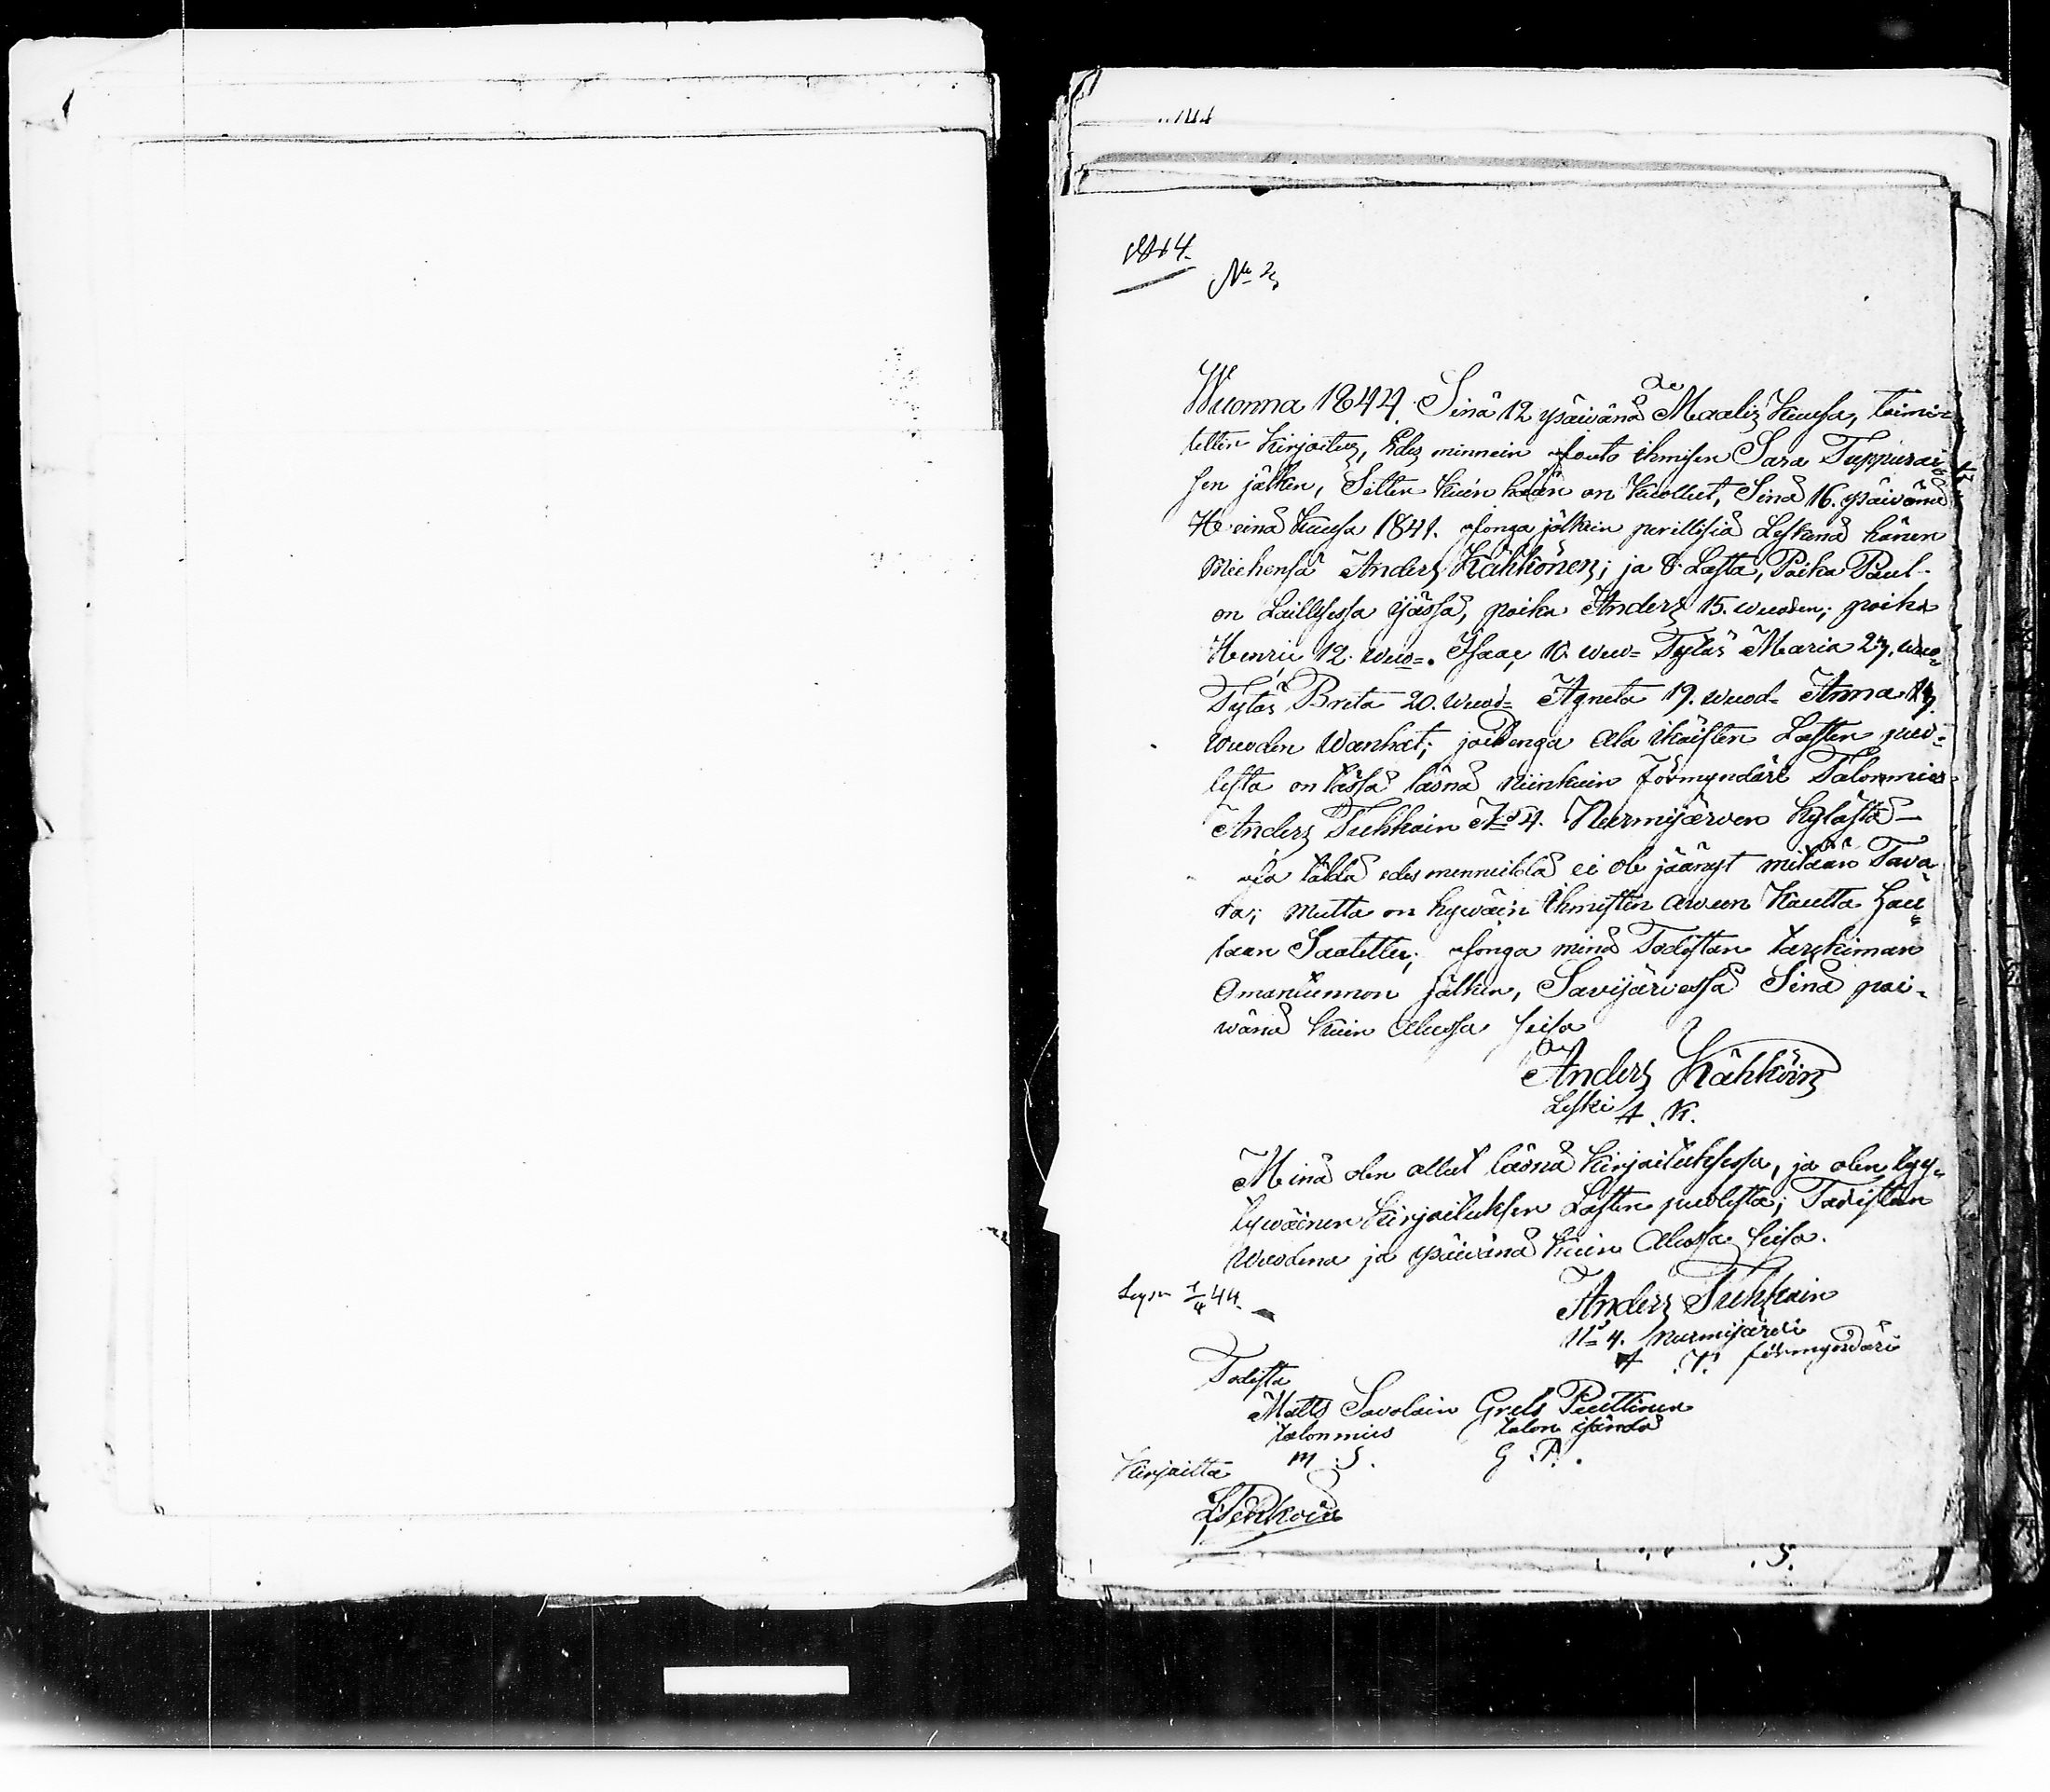 1844.
Wuonna 1844. Sinä 12 päivänä Maaliz Kuusa, toimi=
tettin Kirjoitus, Edes minnein Louto ihmisen Sara Tuppurai=
sen jälken, Sitten kuin hään on kuollut, Sinä 16. päivänä
Heinä kuusa 1841. Jonga jälkein perillisiä Leskenä hänen
Miehensä Anders Kähkönen; ja 8 Lasta, Poika Paul
on Laillisessa ijässä, poika Anders 15. wuoden; poika
Henric 12. wuo=. Isaac 10. wuo= Tytär Maria 27. wuo=
Tytär Brita 20. wuod= Agneta 19. wuod= Anna 17.
wuoden Wanhat; joidenga ala ikäisten Lasten puo=
lesta on tässä läsnä niinkuin förmyndäri Talonmies
Anders Tuhkain No 4. Nurmijärven kylästä —
Ja täldä edes mennuildä ei ole jäänyt mitään Tava=
ra; mutta on hywäin ihmisten awun kautta hau=
taan Saatettu; Jonga minä Todistan tarkiman
Omantunnon jälken, Savijärvessä Sinä päi=
wänä kuin Alussa seiso
Anders Kähköin
Leski A. K.
Minä olen ollut läsnä kirjoituksessa, ja olen tyy=
tywäinen kirjoituksen Lasten puolesta; Todistan
Wuodena ja päivänä kuin Alussa seiso.
1/4 44. Anders Tuhkain
No 4. Nurmijärvi
A. T. förmyndäri
Todista
Matts Savolain Grels Puittinen
talonmies talon isändä
M. S. G. P.
Kirjoitta